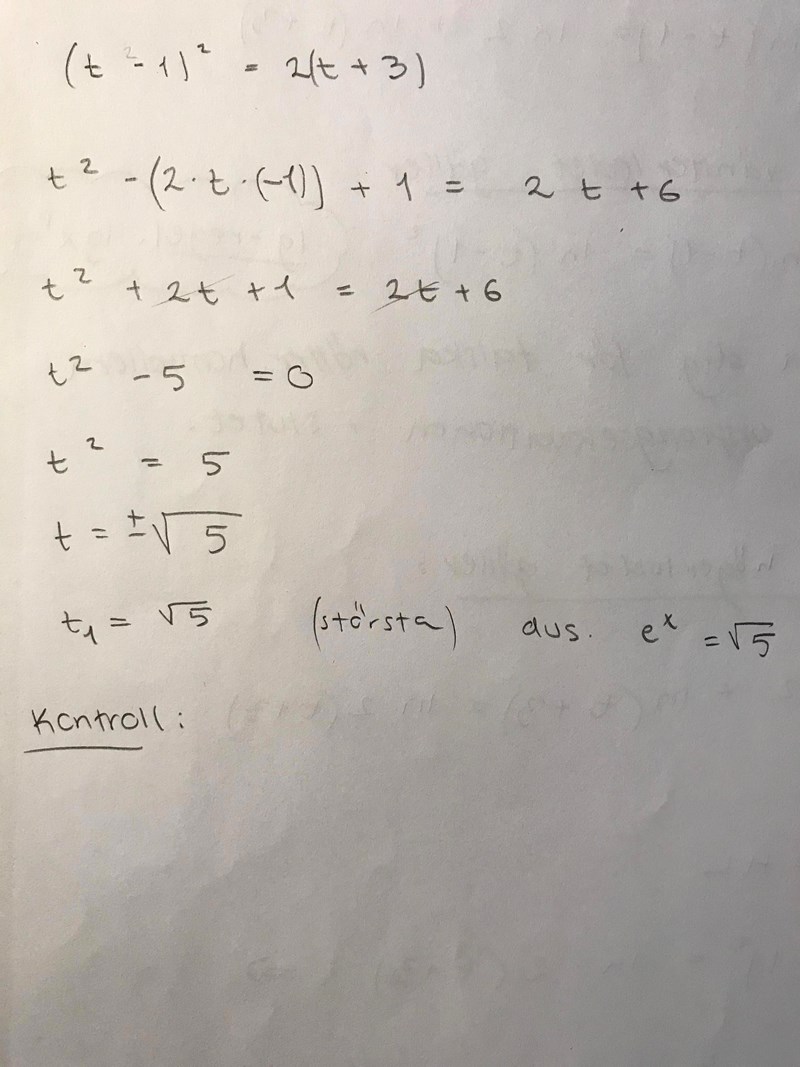 (t² - 1)² = 2(t + 3)
t² - (2 · t · (-1)) + 1 = 2 t + 6
t² + 2t + 1 = 2t + 6
t² - 5 = 0
t² = 5
t = ±√5
t₁ = √5 (största) dvs. eˣ = √5
Kontroll: